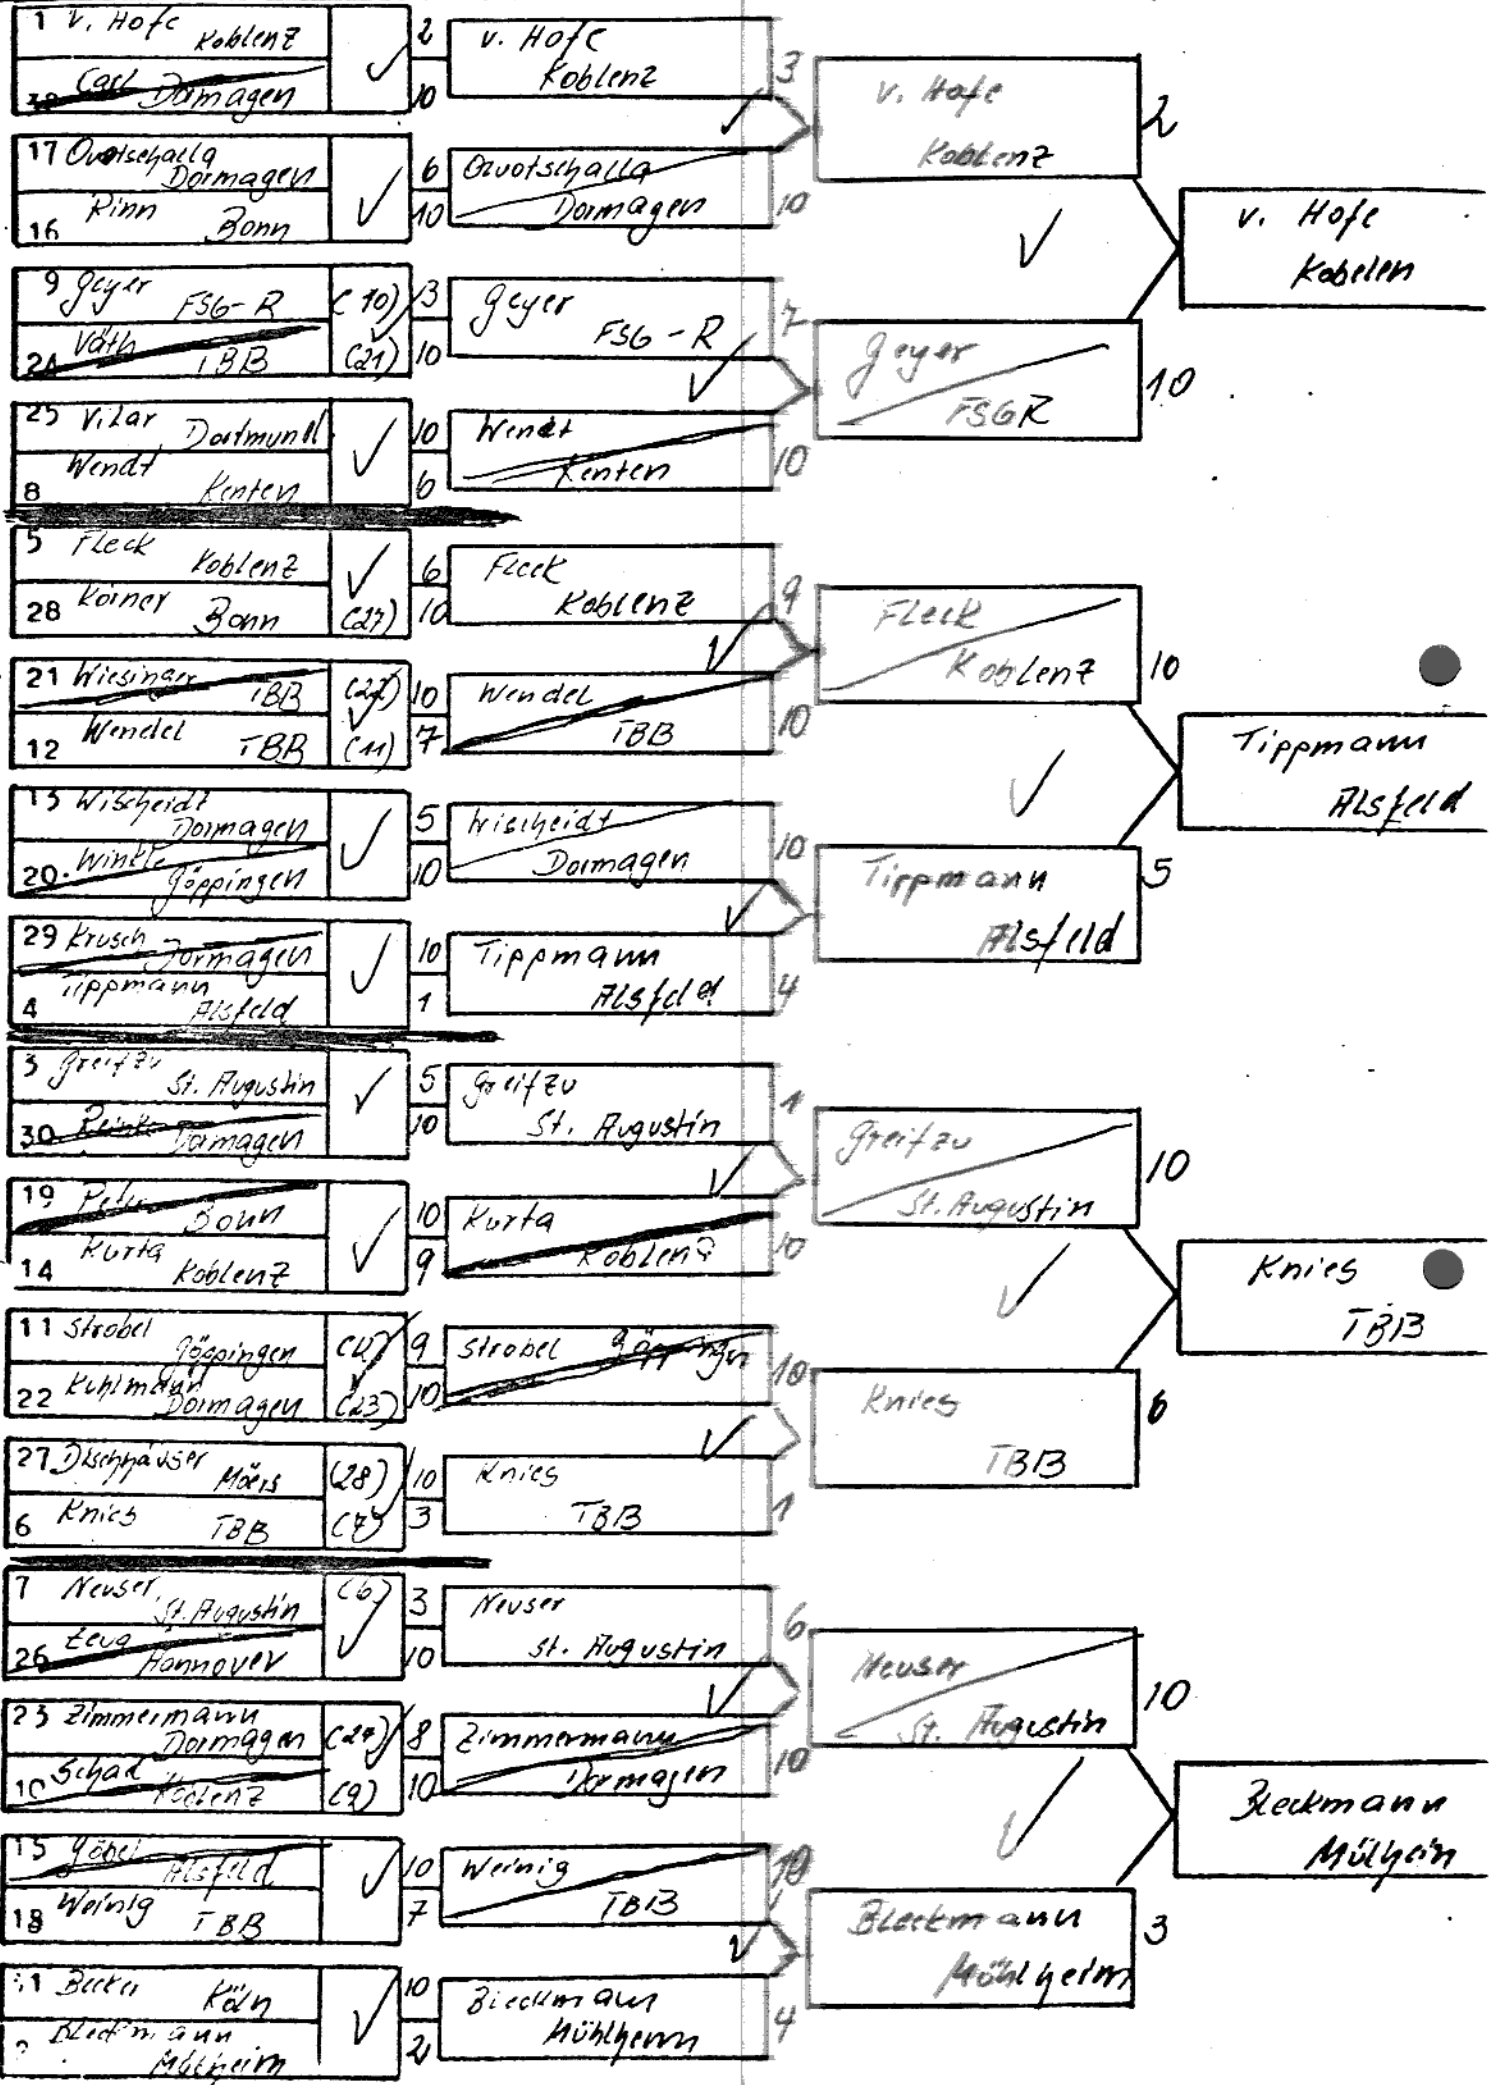 1 v. Hofe
Koblenz
Carl
Dormagen
2
10
17
Dormagen
Rinn
16 Bonn
6
10
9 Geyer
FSG-R (10)
Väth
24 TBB (21)
3
10
25 Vilar
Dortmund
Wendt
8 Kenten
10
6
5 Fleck
Koblenz
28 Körner
Bonn (27)
6
10
21 Wiesinger
TBB (22)
Wendel
12 TBB (11)
10
7
13 Wischeidt
Dormagen
20. Winkle
Göppingen
5
10
29 Krusch
Dormagen
Tippmann
4 Alsfeld
10
1
3 Greifzu
St. Augustin
30
Dormagen
5
10
19
Bonn
Kurta
14 Koblenz
10
9
11 Strobel
Göppingen
Kuhlmann
22 Dormagen (23)
9
10
27
(28)
6 Knies
TBB (7)
10
3
7 Neuser (6)
St. Augustin
Zeug
26 Hannover
3
10
23 Zimmermann
Dormagen (24)
Schad
10 Koblenz (9)
8
10
15 Göbel
Alsfeld
Weinig
18 TBB
10
7
Becker Köln
Bleckmann
Mülheim
10
2
v. Hofe
Koblenz
3
Dormagen
10
Geyer
FSG-R
7
Wendt
Kenten
10
Fleck
Koblenz
9
Wendel
TBB
10
Wischeidt
Dormagen
10
Tippmann
Alsfeld
4
Greifzu
St. Augustin
1
Kurta
Koblenz
10
Strobel Göppingen
10
Knies
TBB
1
Neuser
St. Augustin
6
Zimmermann
Dormagen
10
Weinig
TBB
10
Bleckmann
Mühlheim
4
v. Hofe
Koblenz
2
Geyer
FSGR
10
Fleck
Koblenz
10
Tippmann
Alsfeld
5
Greifzu
St. Augustin
10
Knies
TBB
6
Neuser
St. Augustin
10
Bleckmann
Mühlheim
3
v. Hofe
Kobelen
Tippmann
Alsfeld
Knies
TBB
Bleckmann
Mülhein